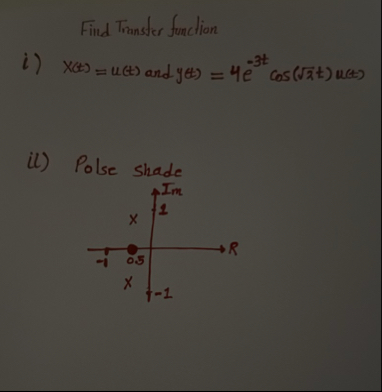 Find Transfer function
i) x(t) = u(t) and y(t) = 4e^-3t cos(√2t) u(t)
ii) Polse shade
Im
x 1
-1 0.5 R
x -1